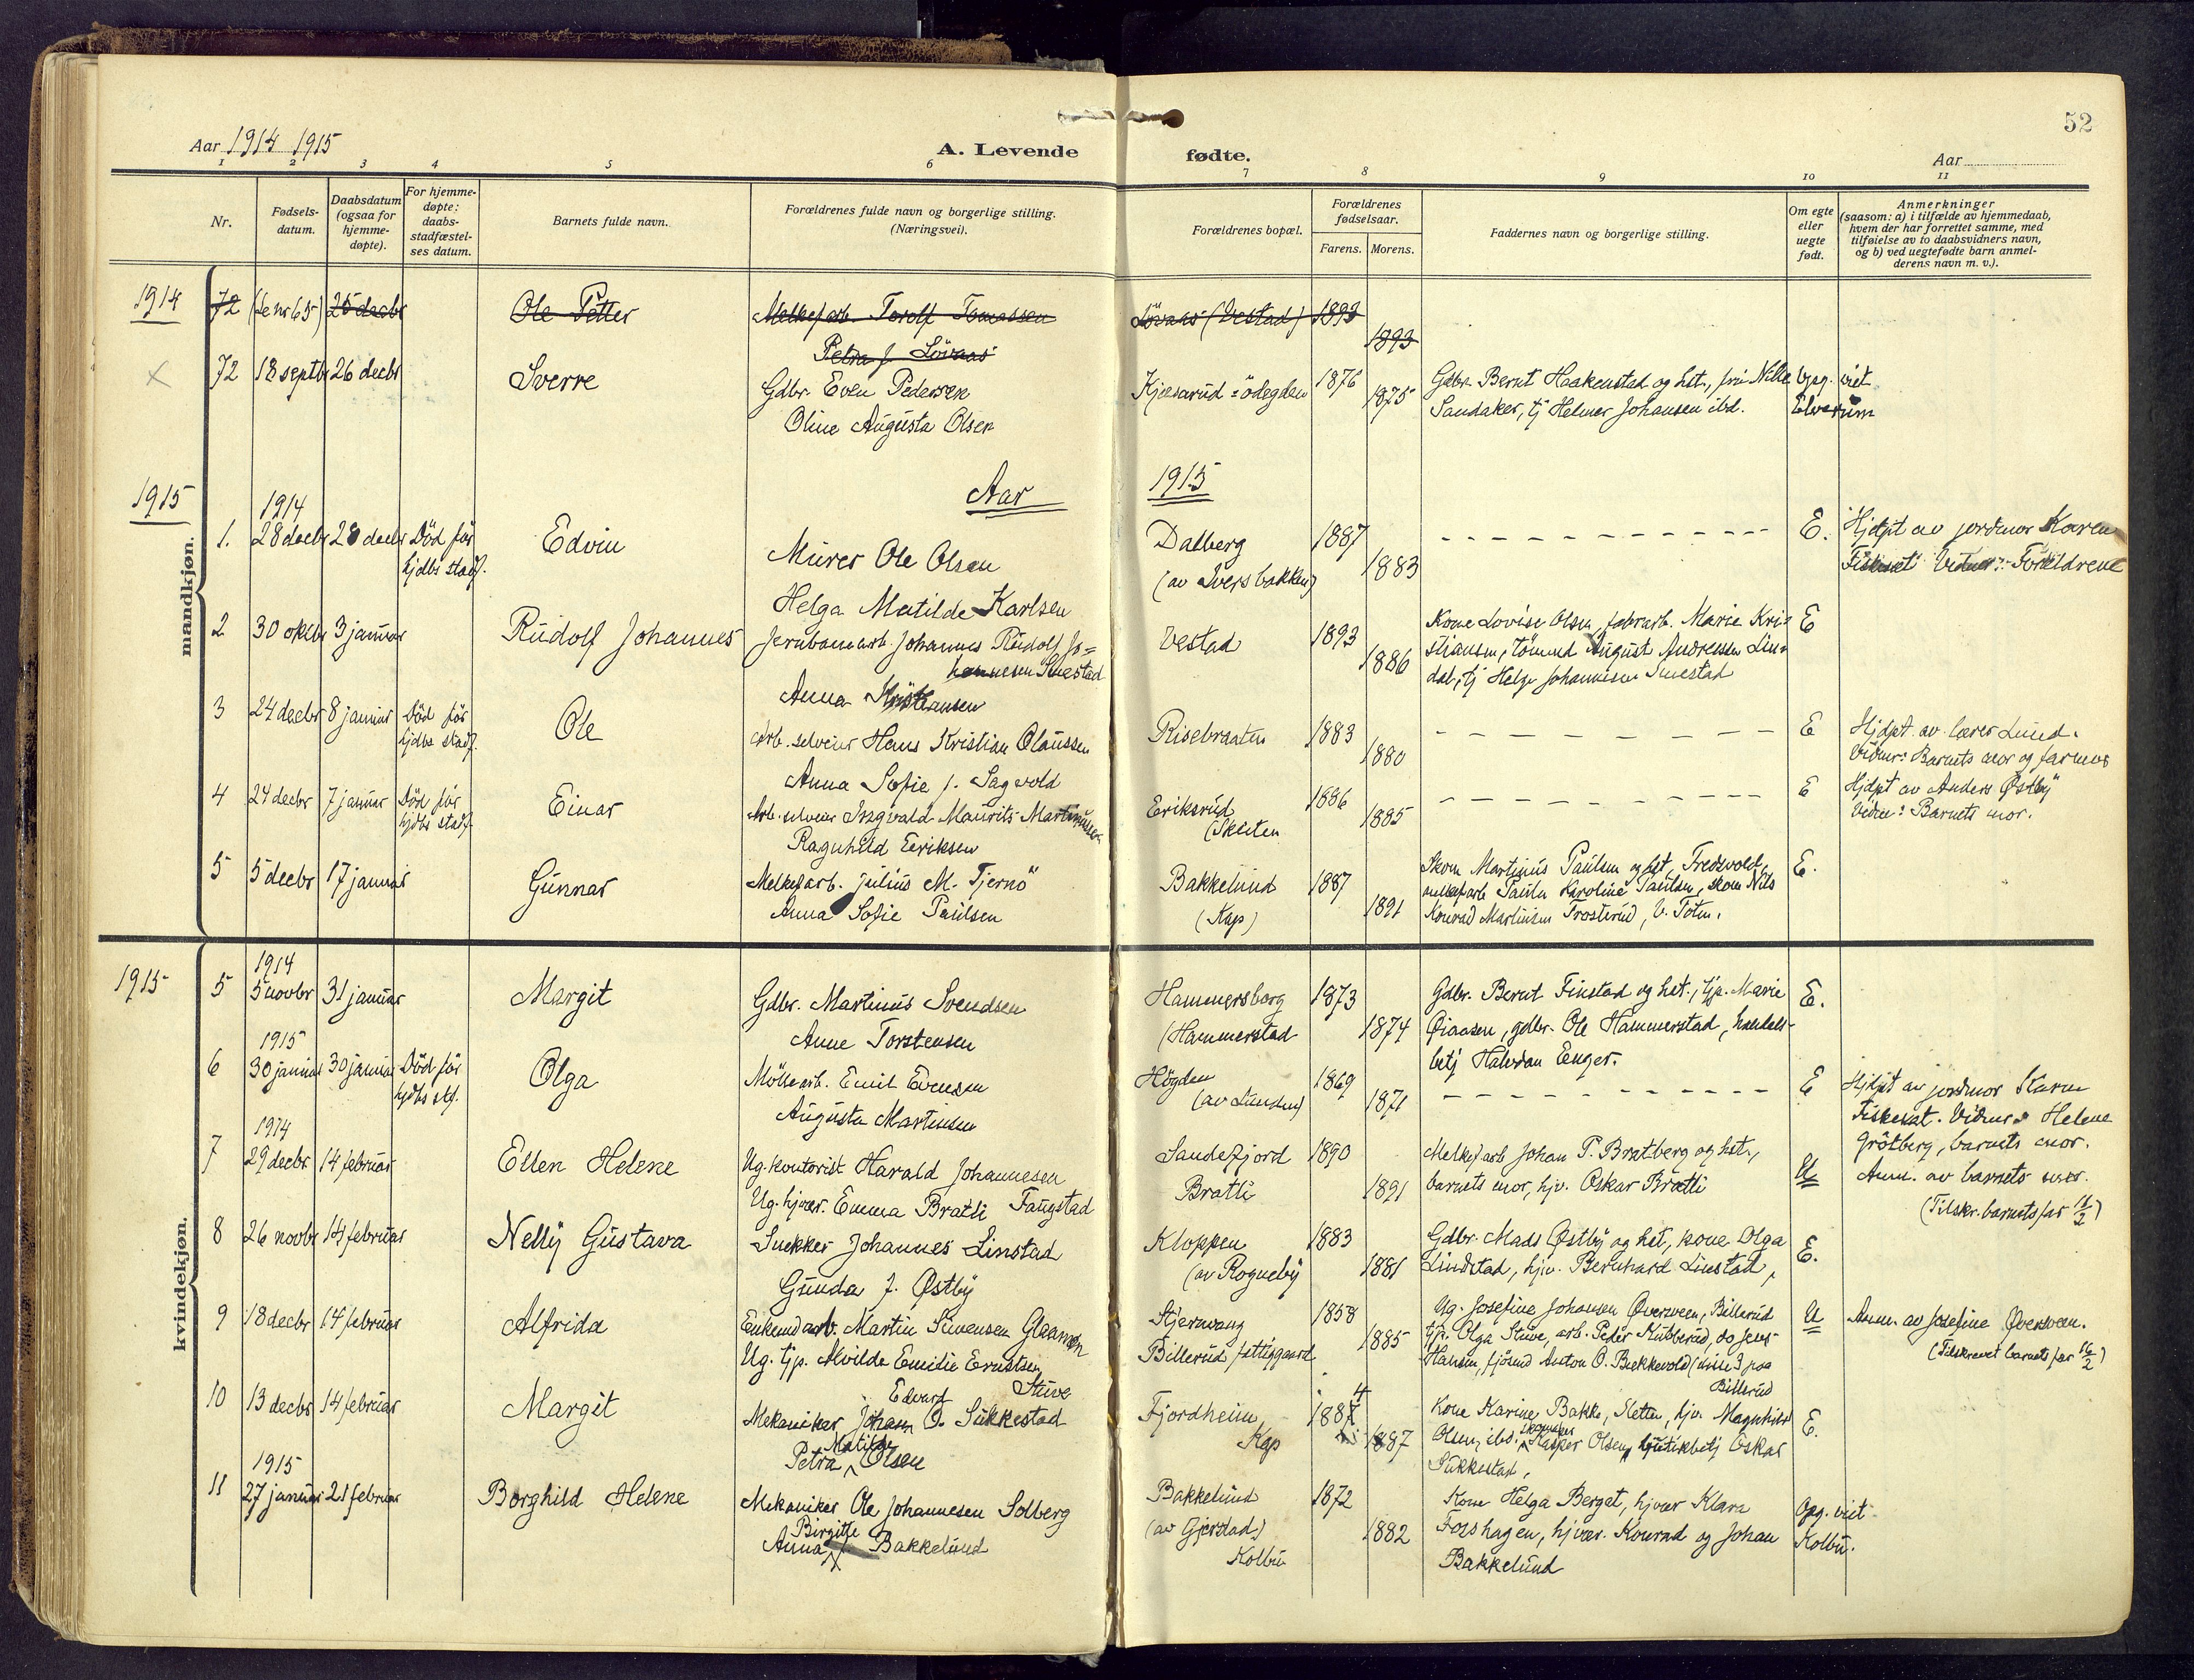 52
Aar 1914 1915
A. Levende fødte.
Aar
1 2 3 4 5 6 7 8 9 10 11
Nr.
Fødsels-
datum.
Daabsdatum
(ogsaa for
hjemme-
døpte).
For hjemme-
døpte:
daabs-
stadfæstel-
ses datum.
Barnets fulde navn.
Forældrenes fulde navn og borgerlige stilling.
(Næringsvei).
Forældrenes bopæl.
Forældrenes
fødselsaar.
Farens. Morens.
Faddernes navn og borgerlige stilling.
Om egte
eller
uegte
født.
Anmerkninger
(saasom: a) i tilfælde av hjemmedaab,
hvem der har forrettet samme, med
tilføielse av to daabsvidners navn,
og b) ved uegtefødte barn anmel-
derens navn m. v.).
mandkjøn.
1914
72 (Se nr 65) 25 decbr Ole Petter Melkefarb. Torolf Tomassen Lövaas (Vestad) 1893
Petra J. Lövaas 1893
72 18 septbr 26 decbr Sverre Gdbr. Even Pedersen Kjersarud-ödegden 1876 1875
Oline Augusta Olsen
Gdbr. Bernt Haakenstad og hst.,
Sandaker, tj Helmer Johansen ibd.
Opg. viet
Elverum
1915
Aar 1915
1914
1. 28 decbr 28 decbr Död för
hjdbs stadf.
Edvin
Murer Ole Olsen
Helga Matilde Karlsen
Dalberg
(av Iversbakken)
1887 1883
E.
Hjdpt av jordmor Karen
Fiskeset. Vidner: Foreldrene
2 30 oktbr 3 januar Rudolf Johannes
Jernbanearb. Johannes Rudolf Jo=
hannesen Smestad
Anna Kristiansen
Vestad 1893 1886
Kone Lovise Olsen, fabrarb. Marie Kri-
stiansen, tömmd August Andreassen Lin-
dal, tj Helge Johannesen Smestad
E
3 24 decbr 8 januar Död för
hjdbs stadf.
Ole
Arb. selveier Hans Kristian Olaussen
Anna Sofie J. Sagvold
Risebraaten 1883 1880
E
Hjdpt. av lærer Lund.
Vidner: Barnets mor og farmor
4 24 decbr 7 januar Död för
hjdbs stadf.
Einar
Arb. selveier Ingvald Maurits Martinussen
Ragnhild Eeriksen
Eriksrud
(Skliten
1886 1885
E
Hjdpt av Anders Østby
Vidne: Barnets mor.
5 5 decbr 17 januar Gunnar
Melkefarb. Julius M. Tjernö
Anna Sofie Paulsen
Bakkelund
(Kap)
1887 1891
Skom Martinus Paulsen og hst. Fredsvold,
melkefarb Paula Karoline Paulsen, skom Nils
Konrad Martinsen Trosterud, V. Toten.
E.
kvindekjøn.
1915
1914
5 5 novbr 31 januar Margit
Gdbr. Martinus Svendsen
Anne Torstensen
Hammersborg
(Hammerstad
1873 1874
Gdbr. Bernt Finstad og hst., tjp. Marie
Øiaasen, gdbr. Ole Hammerstad, handels-
betj Halvdan Eenger.
E.
1915
6 30 januar 30 januar Död för
hjdbs stf.
Olga
Möllearb. Emil Evensen
Augusta Martinsen
Högden
(av Lunden)
1869 1871
E
Hjdpt av jordmor Karen
Fiskeset. Vidner: Helene
Grötberg, barnets mor.
1914
7 29 decbr 14 februar Ellen Helene
Ug. kontorist Harald Johannesen
Ug. hjvær. Emma Bratli Faugstad
Sandefjord
Bratli
1890 1891
Melkefarb Johan P. Bratberg og hst.,
barnets mor, hjv. Oskar Bratli
U
Anm. av barnets mor.
(Tilskr. barnets far 11/2)
8 26 novbr 14 februar Nelly Gustava
Snekker Johannes Linstad
Gunda J. Østby
Kloppen
(av Rogneby
1883 1881
Gdbr. Mads Østby og hst, kone Olga
Lindstad, hjv. Bernhard Linstad,
E.
9 18 decbr 14 februar Alfrida
Enkemd arb. Martin Simensen Glaamen
Ug. tjp. Alvilde Emilie Ernstsen
Stuve
Stjernvang
Billerud fattiggaard
1858 1885
Ug. Josefine Johansen Øversveen, Billerud
tjp. Olga Stuve, arb. Peder Kutsberud, do Jens
Hansen, fjösmd Anton O. Bækkevold (disse 3 paa
Billerud
U
Anm. av Josefine Øversveen.
(Tilskrevet barnets far 16/2)
10 13 decbr 14 februar Margit
Edvard
Mekaniker Johan O. Sukkestad
Matilde
Petra Olsen
Fjordheim
Kap
1884 1887
Kone Karine Bakke, Sletten, hjv. Magnhild
Olsen, ibd. Kasper Olsen, butikbetj Oskar
Sukkestad.
E.
1915
11 27 januar 21 februar Borghild Helene
Mekaniker Ole Johannesen Solberg
Birgitte
Anna Bakkelund
Bakkelund
(av Gjerstad)
Kolbu
1872 1882
Kone Helga Berget, hjvær Klara
Forshagen, hjvær. Konrad og Johan
Bakkelund
Opg. viet
Kolbu.